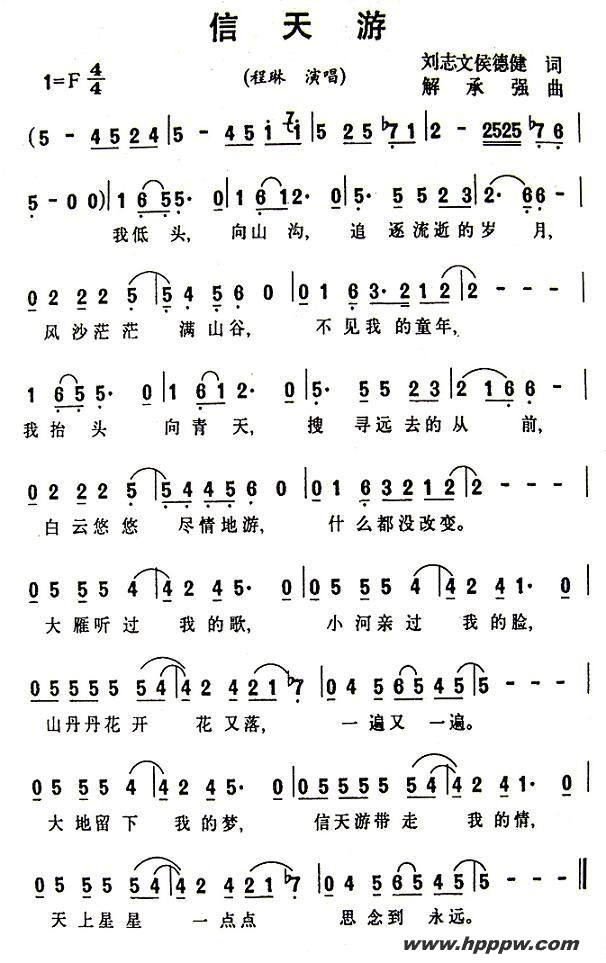 信天游
1=F 4/4
(程琳 演唱)
刘志文侯德健 词
解承强 曲
(5 - 4524 | 5 - 45i♭7i | 525♭71 | 2 - 2525♭76 |
5 - 00) | 1655· 0 | 1612· 0 | 5· 5523 | 2· 66 - |
我低头, 向山沟, 追 逐流逝的岁 月,
02225 | 54560 | 0163·212 | 2 - - - |
风沙茫茫 满山谷, 不见我的童年,
1655· 0 | 1612· 0 | 5· 5523 | 2166 - |
我抬头 向青天, 搜 寻远去的从 前,
02225 | 544560 | 0163212 | 2 - - - |
白云悠悠 尽情地游, 什么都没改变。
05554 | 4245· 0 | 05554 | 4421· 0 |
大雁听过 我的歌, 小河亲过 我的脸,
0555554 | 442421♭7 | 0456545 | 5 - - - |
山丹丹花开 花又落, 一遍又一遍。
05554 | 4245· 0 | 055554 | 4421· 0 |
大地留下 我的梦, 信天游带走 我的情,
055554 | 442421♭7 | 0456545 | 5 - - - ‖
天上星星 一点点 思念到 永远。
www.hpppw.com